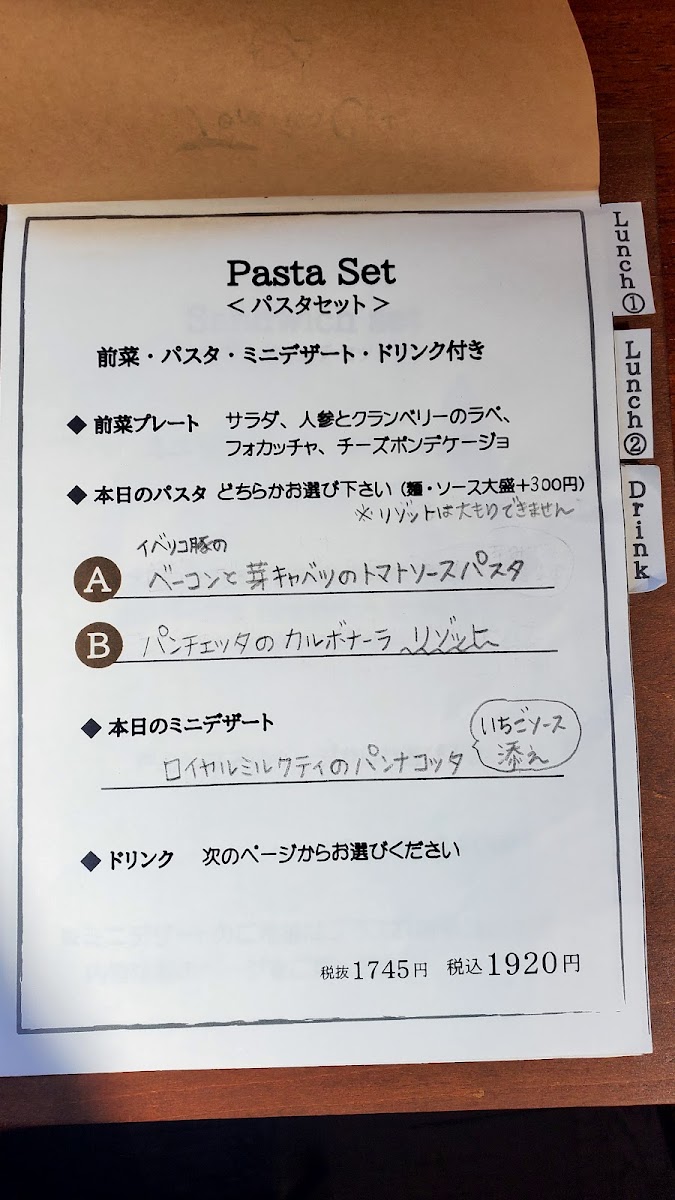 Pasta Set
<パスタセット>
前菜・パスタ・ミニデザート・ドリンク付き
◆ 前菜プレート サラダ、人参とクランベリーのラペ、
フォカッチャ、チーズポンデケージョ
◆ 本日のパスタ どちらかお選び下さい (麺・ソース大盛+300円)
※リゾットは大もりできません
イベリコ豚の
A ベーコンと芽キャベツのトマトソースパスタ
B パンチェッタのカルボナーラ リゾット
◆ 本日のミニデザート
いちごソース
添え
ロイヤルミルクティのパンナコッタ
◆ ドリンク 次のページからお選びください
税抜1745円 税込1920円
Lunch①
Lunch②
Drink